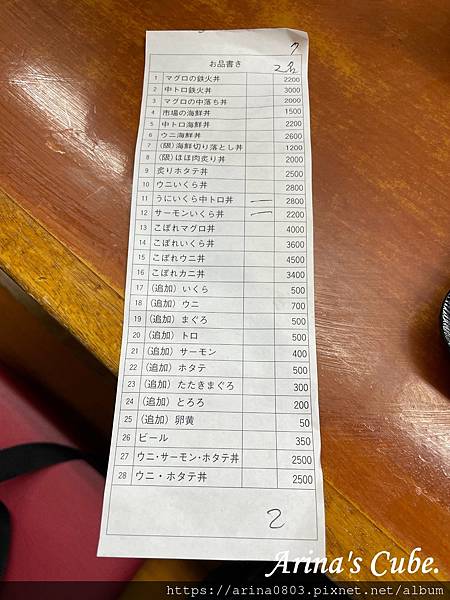 7
お品書き
2名
1 マグロの鉄火丼 2200
2 中トロ鉄火丼 3000
3 マグロの中落ち丼 2000
4 市場の海鮮丼 1500
5 中トロ海鮮丼 2200
6 ウニ海鮮丼 2600
7 (限)海鮮切り落とし丼 1200
8 (限)ほほ肉炙り丼 2000
9 炙りホタテ丼 2500
10 ウニいくら丼 2800
11 うにいくら中トロ丼 一 2800
12 サーモンいくら丼 一 2200
13 こぼれマグロ丼 4000
14 こぼれいくら丼 3600
15 こぼれウニ丼 4500
16 こぼれカニ丼 3400
17 (追加) いくら 500
18 (追加) ウニ 700
19 (追加) まぐろ 500
20 (追加) トロ 500
21 (追加) サーモン 400
22 (追加) ホタテ 500
23 (追加) たたきまぐろ 300
24 (追加) とろろ 200
25 (追加) 卵黄 50
26 ビール 350
27 ウニ・サーモン・ホタテ丼 2500
28 ウニ・ホタテ丼 2500
2
Arina's Cube.
https://arina0803.pixnet.net/album